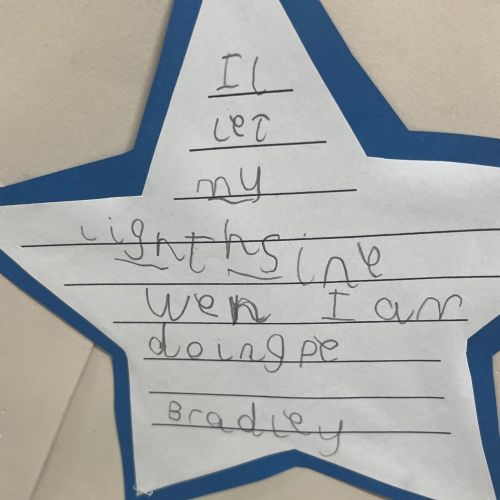 Il
let
my
lighthsine
wen I am
doing pe
Bradley